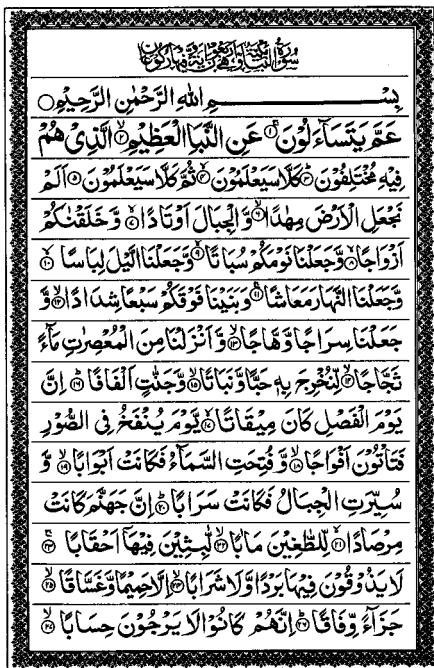 سُوْرَةُ النَّبَاِ مَكِّيَّةٌ وَّهِىَ اَرْبَعُوْنَ اٰيَةً وَّفِيْهَا رُكُوْعَانِ
بِسْمِ اللهِ الرَّحْمٰنِ الرَّحِيْمِ ○
عَمَّ يَتَسَآءَلُوْنَ ۝۱ عَنِ النَّبَاِ الْعَظِيْمِ ۝۲ الَّذِىْ هُمْ
فِيْهِ مُخْتَلِفُوْنَ ۝۳ كَلَّا سَيَعْلَمُوْنَ ۝۴ ثُمَّ كَلَّا سَيَعْلَمُوْنَ ۝۵ اَلَمْ
نَجْعَلِ الْاَرْضَ مِهٰدًا ۝۶ وَّالْجِبَالَ اَوْتَادًا ۝۷ وَّخَلَقْنٰكُمْ
اَزْوَاجًا ۝۸ وَّجَعَلْنَا نَوْمَكُمْ سُبَاتًا ۝۹ وَّجَعَلْنَا الَّيْلَ لِبَاسًا ۝۱۰
وَّجَعَلْنَا النَّهَارَ مَعَاشًا ۝۱۱ وَّبَنَيْنَا فَوْقَكُمْ سَبْعًا شِدَادًا ۝۱۲ وَّ
جَعَلْنَا سِرَاجًا وَّهَّاجًا ۝۱۳ وَّاَنْزَلْنَا مِنَ الْمُعْصِرٰتِ مَآءً
ثَجَّاجًا ۝۱۴ لِّنُخْرِجَ بِهٖ حَبًّا وَّنَبَاتًا ۝۱۵ وَّجَنّٰتٍ اَلْفَافًا ۝۱۶ اِنَّ
يَوْمَ الْفَصْلِ كَانَ مِيْقَاتًا ۝۱۷ يَّوْمَ يُنْفَخُ فِى الصُّوْرِ
فَتَاْتُوْنَ اَفْوَاجًا ۝۱۸ وَّفُتِحَتِ السَّمَآءُ فَكَانَتْ اَبْوَابًا ۝۱۹ وَّ
سُيِّرَتِ الْجِبَالُ فَكَانَتْ سَرَابًا ۝۲۰ اِنَّ جَهَنَّمَ كَانَتْ
مِرْصَادًا ۝۲۱ لِّلطّٰغِيْنَ مَاٰبًا ۝۲۲ لّٰبِثِيْنَ فِيْهَاۤ اَحْقَابًا ۝۲۳
لَا يَذُوْقُوْنَ فِيْهَا بَرْدًا وَّلَا شَرَابًا ۝۲۴ اِلَّا حَمِيْمًا وَّغَسَّاقًا ۝۲۵
جَزَآءً وِّفَاقًا ۝۲۶ اِنَّهُمْ كَانُوْا لَا يَرْجُوْنَ حِسَابًا ۝۲۷